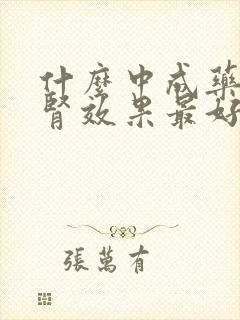 什麼中成藥
腎效果最好
張萬有